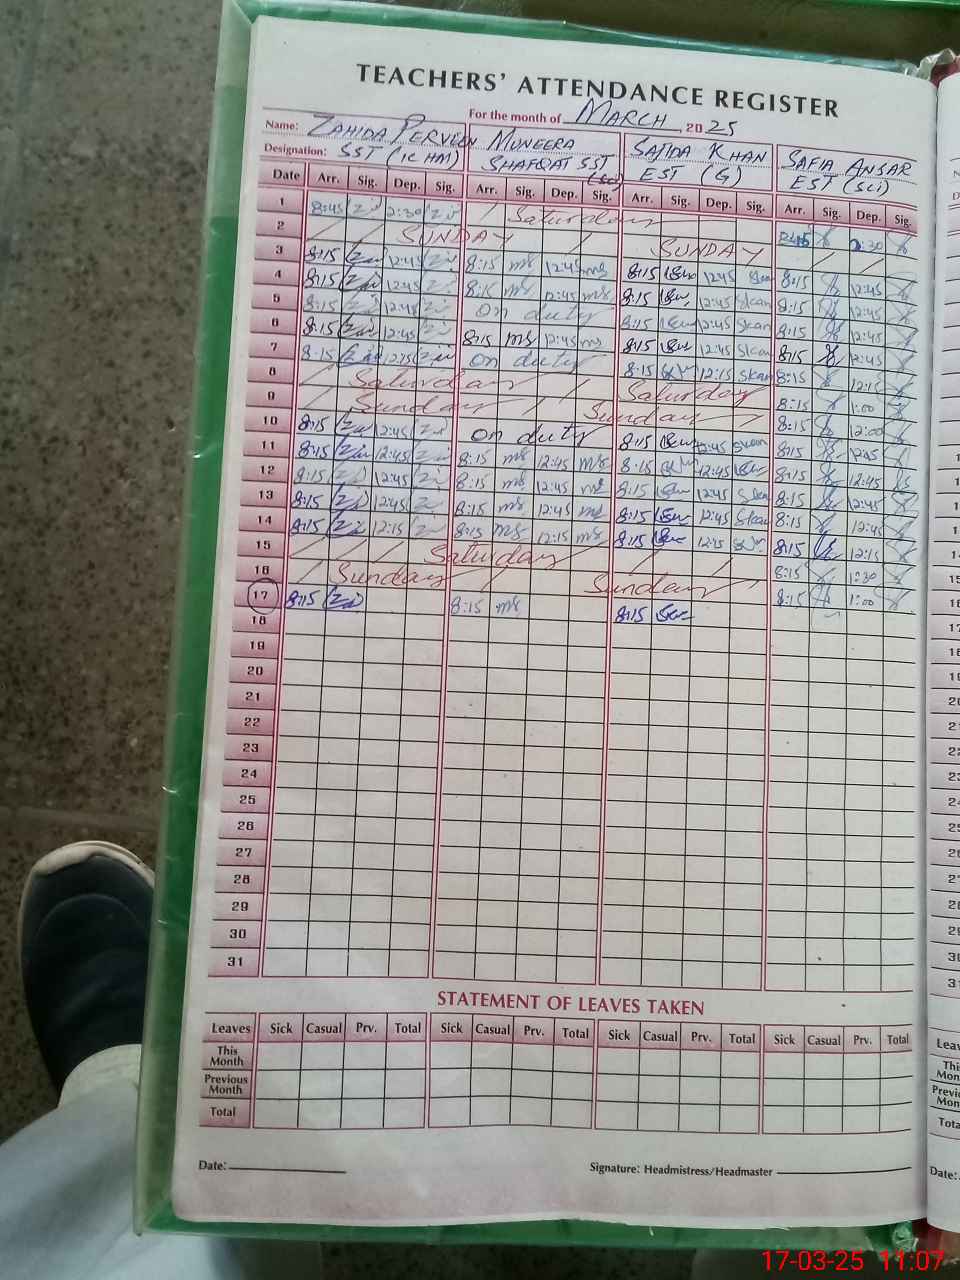 TEACHERS' ATTENDANCE REGISTER
For the month of MARCH, 2025
Name: ZAHIDA PERVEEN MUNEERA SAJIDA KHAN SAFIA ANSAR
Designation: SST (IC HM) SHAFQAT SST (sci) EST (G) EST (sci)
Date Arr. Sig. Dep. Sig. Arr. Sig. Dep. Sig. Arr. Sig. Dep. Sig. Arr. Sig. Dep. Sig.
1 8:45 2:30 Saturday 2:30
2 SUNDAY SUNDAY
3 8:15 12:45 8:15 ms 12:45 ms 8:15 12:45 Skan 8:15 12:45
4 8:15 12:45 8:15 ms 12:45 ms 8:15 12:45 Skan 8:15 12:45
5 8:15 12:45 On duty 8:15 12:45 Skan 8:15 12:45
6 8:15 12:45 8:15 ms 12:45 ms 8:15 12:45 Skan 8:15 12:45
7 8:15 12:15 on duty 8:15 12:15 Skan 8:15 12:15
8 Saturday Saturday 8:15 1:00
9 Sunday Sunday 8:15 12:00
10 8:15 12:45 on duty 8:15 12:45 Skan 8:15
11 8:15 12:45 8:15 ms 12:45 ms 8:15 12:45 8:15 12:45
12 8:15 12:45 8:15 ms 12:45 ms 8:15 12:45 Skan 8:15 12:45
13 8:15 12:45 8:15 ms 12:45 ms 8:15 12:45 Skan 8:15 12:45
14 8:15 12:15 8:15 ms 12:15 ms 8:15 12:15 8:15 12:15
15 Saturday 8:15 1:30
16 Sunday Sunday 8:15 1:00
17 8:15 8:15 ms 8:15
18
19
20
21
22
23
24
25
26
27
28
29
30
31
STATEMENT OF LEAVES TAKEN
Leaves Sick Casual Prv. Total Sick Casual Prv. Total Sick Casual Prv. Total Sick Casual Prv. Total
This Month
Previous Month
Total
Date: Signature: Headmistress/Headmaster
17-03-25 11:07